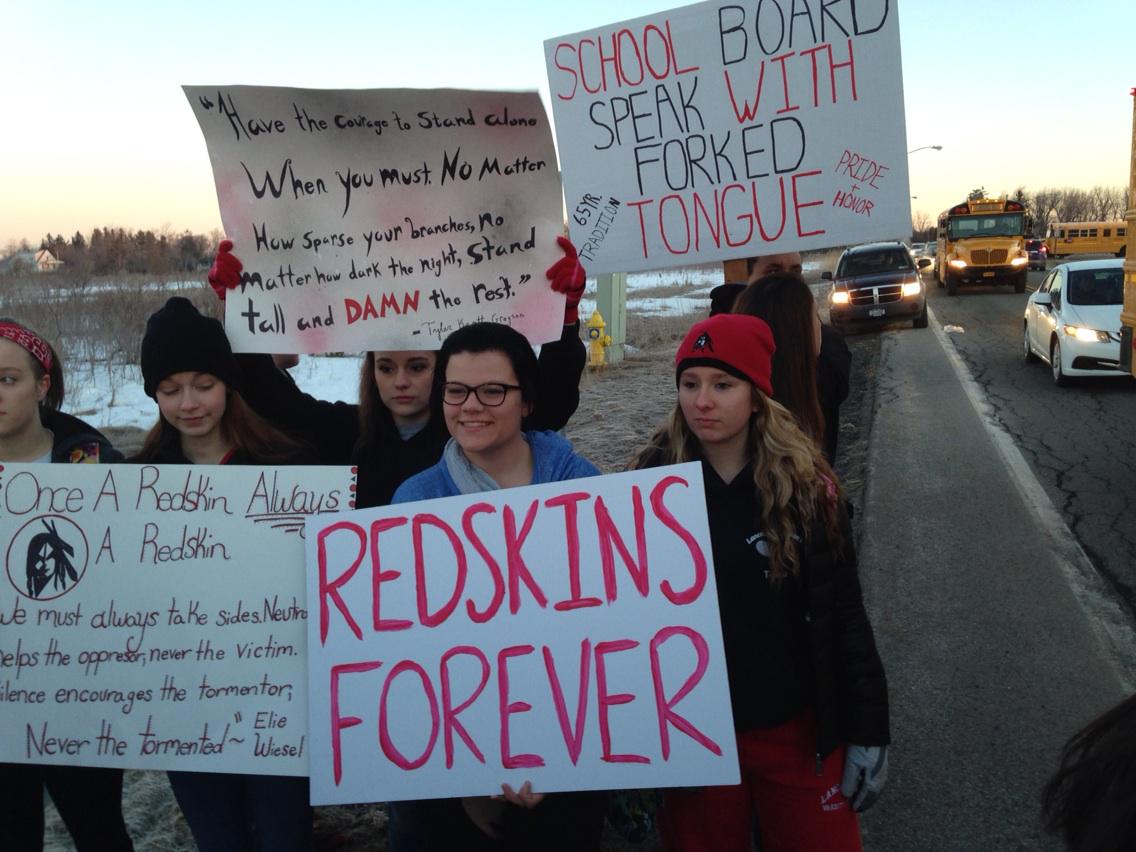 "Have the courage to Stand alone
When you must. No Matter
How sparse your branches, no
matter how dark the night, Stand
tall and DAMN the rest."
SCHOOL BOARD
SPEAK WITH
FORKED
TONGUE
65YR.
TRADITION
PRIDE
+
HONOR
Once A Redskin Always
A Redskin
we must always take sides. Neutra
helps the oppresor, never the victim.
ilence encourages the tormentor,
Never the tormented" ~ Elie
Wiesel
REDSKINS
FOREVER